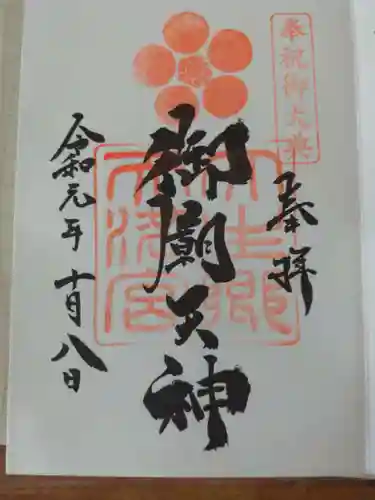 奉祝御大典
奉拝
御廟天神
令和元年十月八日